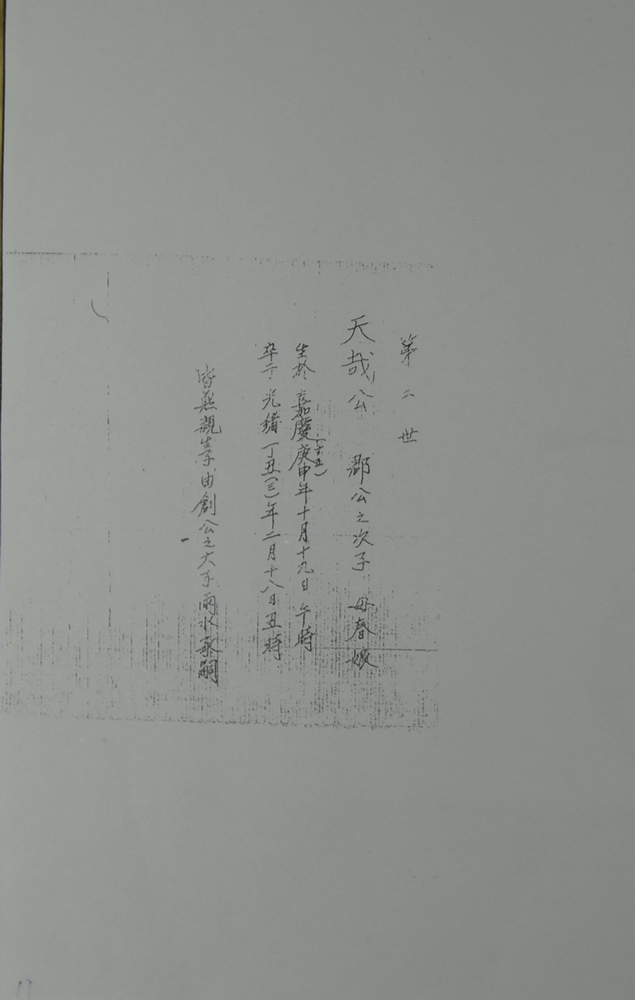 第二世
天哉公 郡公之次子 母春娘
生於嘉慶庚申年十月十九日午時
(十五)
卒于光緒丁丑(三)年二月十八日丑時
由創公之大子雨水承嗣
17